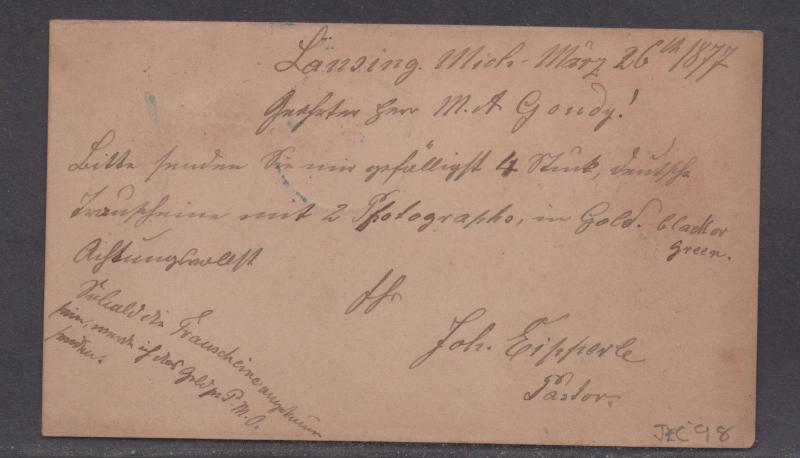 Lansing. Mich. März 26th 1877
Geehrter Herr M. A Gondy!
Bitte senden Sie mir gefälligst 4 Stück, deutsche
Trauscheine mit 2 Photographs, in Gold. black or
Green.
Achtungsvollst
Ihr
Joh. Eipperle
Pastor.
Sobald die Trauscheine angekommen
sein, werde ich das Geld pr P. M. O.
senden.
JEC 98